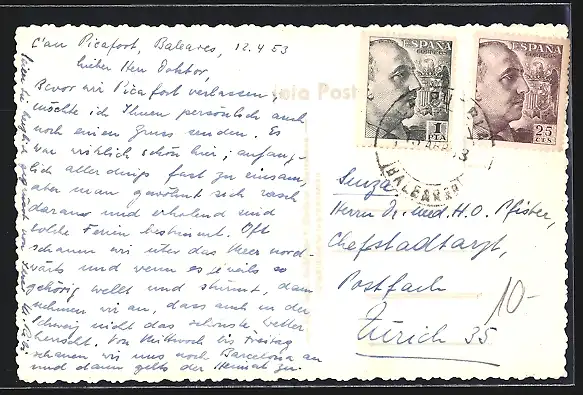 C'an Picafort, Baleares, 12.4.53
Lieber Herr Doktor,
Bevor wir Picafort verlassen,
möchte ich Ihnen persönlich auch
noch einen Gruss senden. Es
war wirklich schön hier; anfäng-
lich allerdings fast zu einsam,
aber man gewöhnt sich rasch
daran und erholend sind
solche Ferien bestimmt. Oft
schauen wir über das Meer nord-
wärts und wenn es jeweils so
gehörig wellt und stürmt, dann
nehmen wir an, dass auch in der
Schweiz nicht das schönste Wetter
herrscht. Von Mittwoch bis Freitag
schauen wir uns noch Barcelona an
und dann gehts der Heimat zu.
ESPAÑA
1
PTA
ESPAÑA
25
CTS.
BALEARES
Suiza
Herrn Dr. med. H. O. Pfister,
Chefstadtarzt,
Postfach
Zürich 35
10-